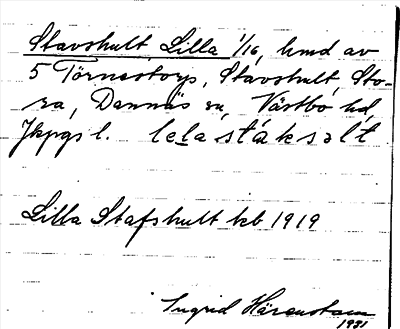 Stavshult Lilla 1/16, hmd av
5 Törnestorp, Stavshult Sto-
ra, Dannäs sn, Västbo hd,
Jkpgs l. lela stáksəlt
Lilla Stafshult kb 1919
Ingrid Härenstam
1931